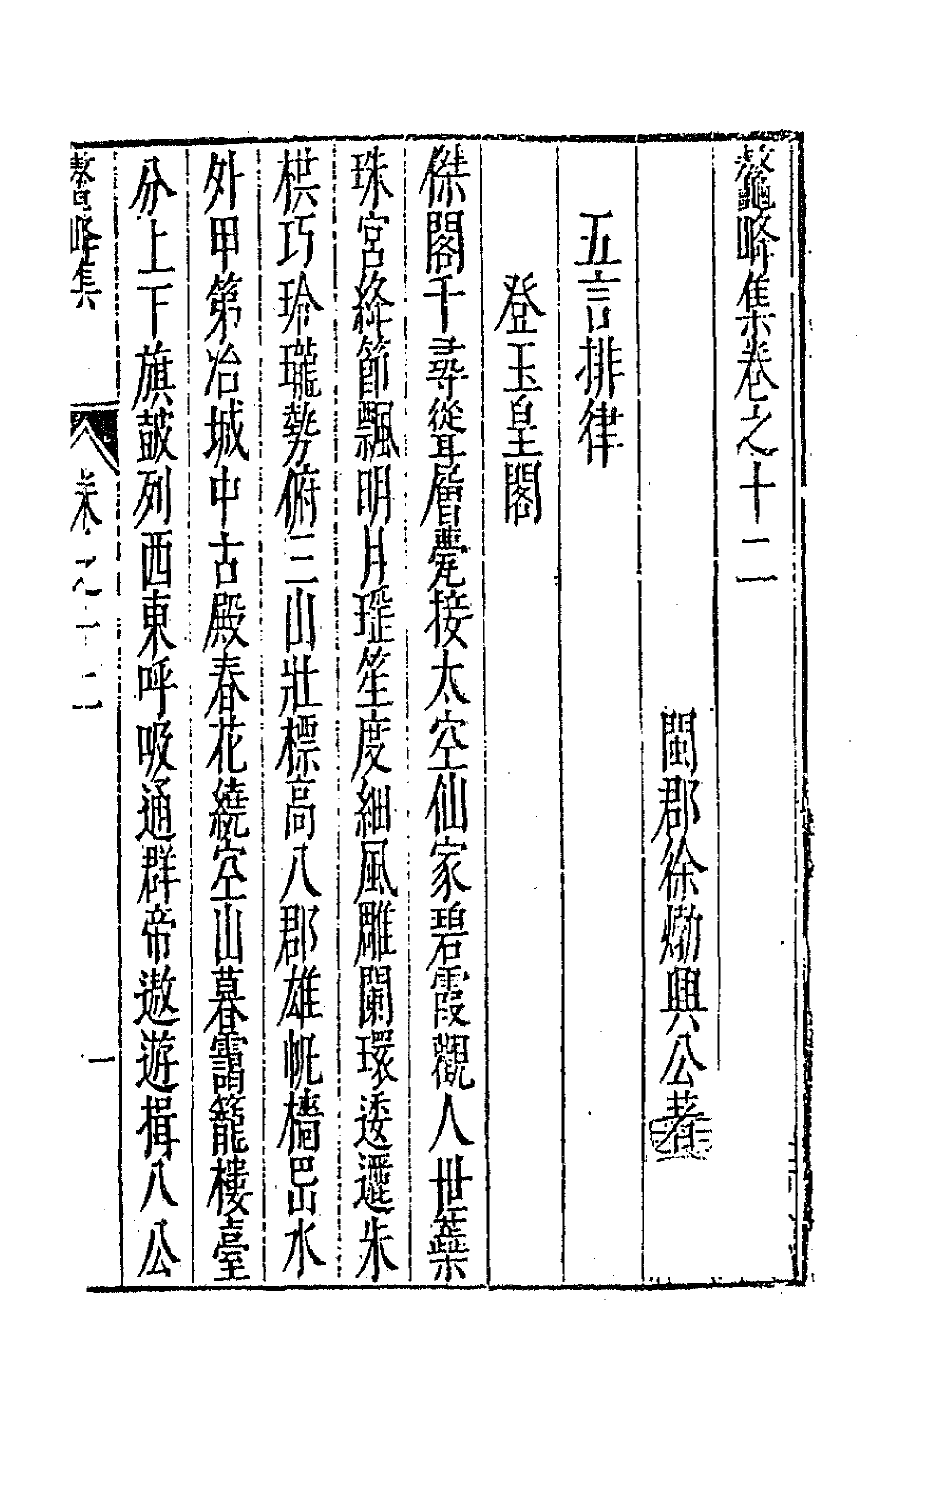 鼇峰集卷之十二
閩郡徐𤊹興公著
五言排律
登玉皇閣
傑閣千尋聳層甍接太空仙家碧霞觀人世蘂
珠宮絳節飄明月瑤笙度細風雕闌環逶邐朱
栱巧玲瓏勢俯三山壯標高八郡雄帆檣岊水
外甲第冶城中古殿春花繞空山暮靄籠樓臺
分上下旗鼓列西東呼吸通群帝遨遊揖八公
鼇峰集 卷之十二 一